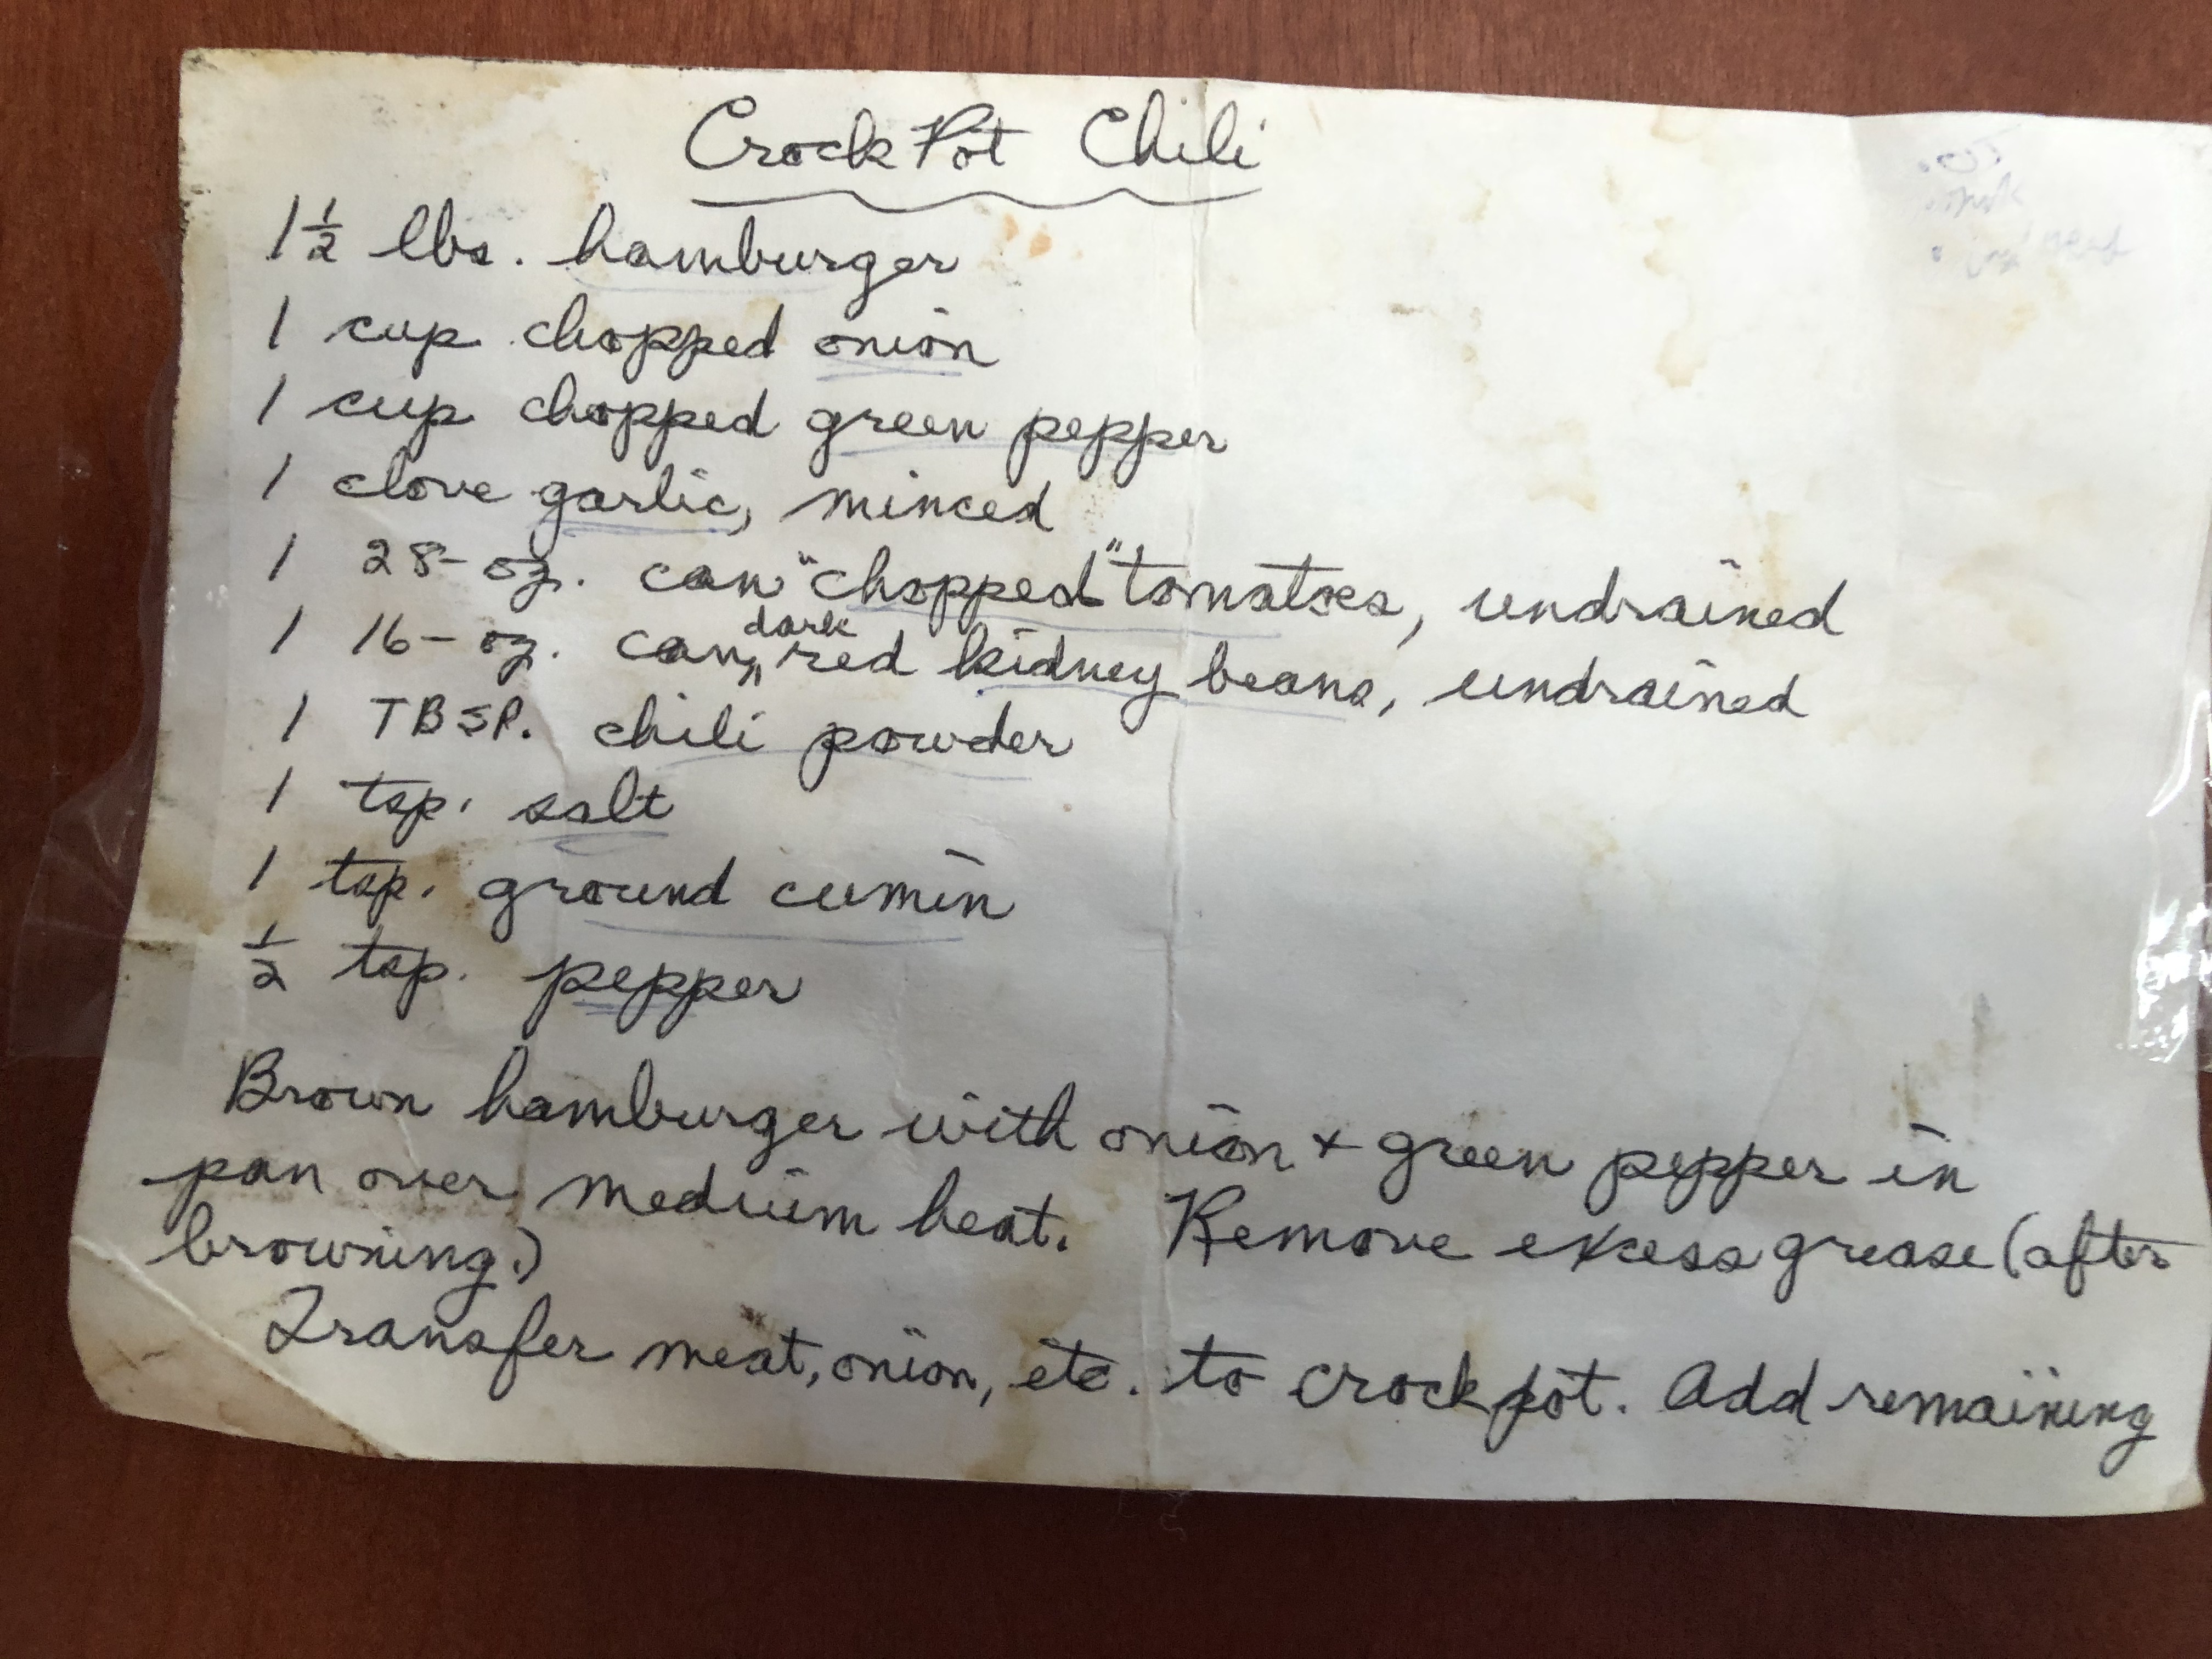 Crock Pot Chili
1 1/2 lbs. hamburger
1 cup chopped onion
1 cup chopped green pepper
1 clove garlic, minced
1 28-oz. can "chopped" tomatoes, undrained
1 16-oz. can dark red kidney beans, undrained
1 TBSP. chili powder
1 tsp. salt
1 tsp. ground cumin
1/2 tsp. pepper
Brown hamburger with onion + green pepper in
pan over medium heat. Remove excess grease (after
browning.)
Transfer meat, onion, etc. to crock pot. Add remaining